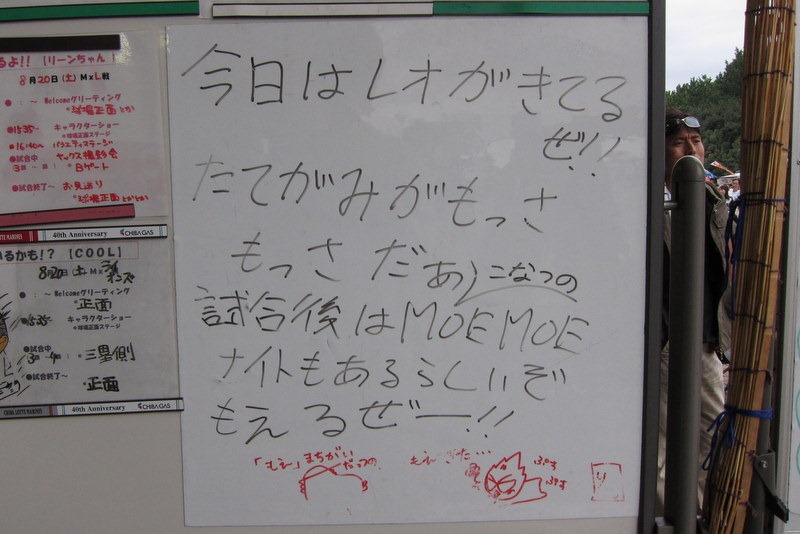 るよ!! 【リーンちゃん】
8月20日(土) MxL戦
● : ～ Welcomeグリーティング
*球場正面とか
●15:35- キャラクターショー
*球場正面ステージ
●16:40～ バラエティステージ
●試合中 マックス撮影会
Bゲート
●試合終了～ お見送り
*球場正面とかとか
40th Anniversary CHIBA GAS
いるかも!? 【COOL】
8月20日(土) Mxライオンズ
● : ～ Welcomeグリーティング
*正面
●15:35- キャラクターショー
*球場正面ステージ
●試合中
三塁側
●試合終了～
*正面
CHIBA LOTTE MARINES 40th Anniversary CHIBA GAS
今日はレオがきてる
ぜ!!
たてがみがもっさ
もっさだぁ)こなつの
試合後はMOEMOE
ナイトもあるらしいぞ
もえるぜー!!
まちがい
だっつの
ぷす
ぷす